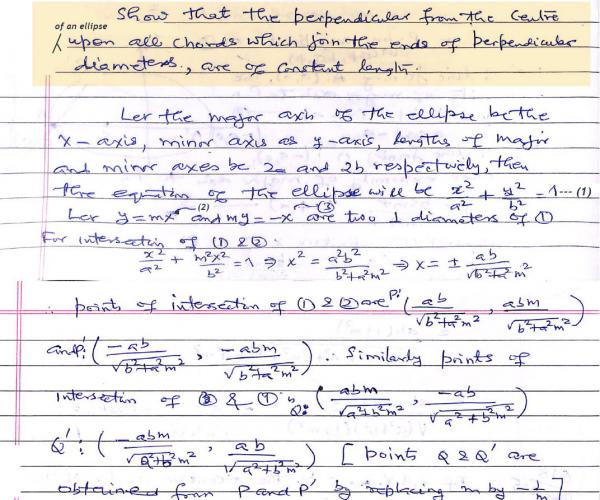 Show that the perpendicular from the Centre
of an ellipse
upon all chords which join the ends of perpendicular
diameters, are of constant length.
Let the major axis of the ellipse be the
x-axis, minor axis as y-axis, lengths of major
and minor axes be 2a and 2b respectively, then
the equation of the ellipse will be x²/a² + y²/b² = 1 --- (1)
Let y=mx (2) and my=-x (3) are two ⊥ diameters of ①
For intersection of ① & ②:
x²/a² + m²x²/b² = 1 ⇒ x² = a²b²/(b²+a²m²) ⇒ x = ± ab/√(b²+a²m²)
∴ points of intersection of ① & ② are P: (ab/√(b²+a²m²), abm/√(b²+a²m²))
and P': (-ab/√(b²+a²m²), -abm/√(b²+a²m²)) ∴ Similarly points of
intersection of ③ & ① is Q: (abm/√(a²+b²m²), -ab/√(a²+b²m²))
Q': (-abm/√(a²+b²m²), ab/√(a²+b²m²)) [points Q & Q' are
obtained from P and P' by replacing m by -1/m]